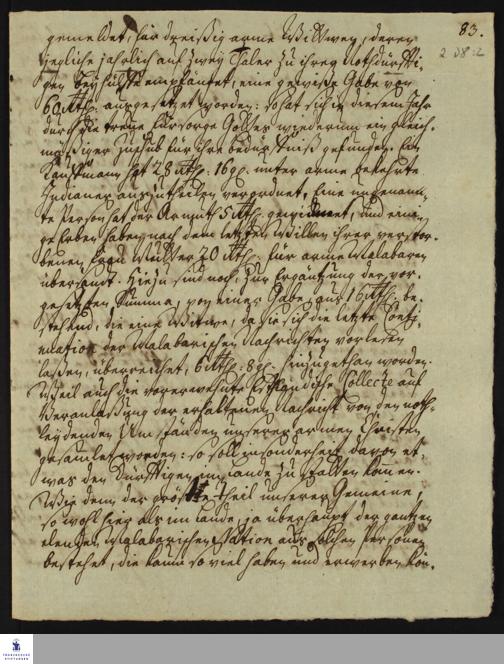 83.
2 D8:2
gemeldet, für dreißig arme Wittwen, deren
jegliche jährlich auf zwey Thaler zu ihrer Nothdürfti-
gen Beyhülfe empfänget, eine gewisse Gabe von
60 Rthl. ausgesetzet worden: so hat sich in diesem Jahr
durch die treue Fürsorge Gottes wiederum ein gleich-
mäßiger Zuschub für ihre bedürfniß gefunden. Ein
Kauffmann hat 28 Rthl. 16 gr. unter arme bekehrte
Indianer auszutheilen verordnet, Eine ungenann-
te Person hat der Armut 5 Rthl. gewidmet, und eini-
ge Erben haben nach dem letzten Willen ihrer verstor-
benen Frau Mutter 20 Rthl. für arme Malabaren
übersandt. Hiezu sind noch, zur Ergäntzung der vor-
gesetzten Summa, von einer Gabe, aus 16 Rthl. be-
stehend, die eine Witwe, da sie sich die letzte Conti-
nuation der Malabarischen Nachrichten vorlesen
lassen, überreichet, 6 Rthl. 8 gr. hinzugethan worden.
Weil auch die vorerwehnte Collecte auf
Veranlaßung der erhaltenen Nachricht von den noth-
leydenden Umständen unserer armen Christen
gesamlet worden: so soll insonderheit davon et-
was den Dürftigen im Lande zu statten kommen.
Wie denn der größte Theil unserer Gemeine,
so wohl hier als im Lande, ja überhaupt der gantzen
elenden Malabarischen Nation aus solchen Personen
bestehet, die kaum so viel haben und erwerben kön-
FRANCKESCHE
STIFTUNGEN